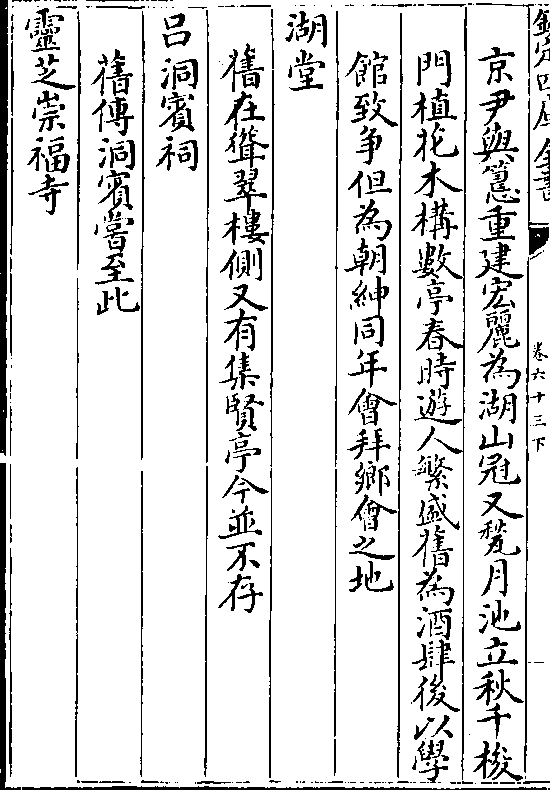 欽定四庫全書
卷六十三下
京尹與𥲅重建宏麗為湖山冠又甃月池立秋千梭
門植花木構數亭春時遊人繁盛舊為酒肆後以學
館致争但為朝紳同年會拜鄉會之地
湖堂
舊在聳翠樓側又有集賢亭今並不存
吕洞賓祠
舊傳洞賓嘗至此
靈芝崇福寺